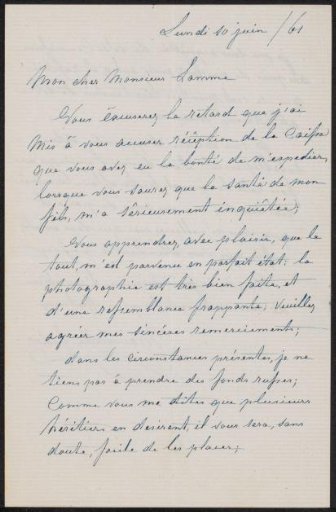 Lundi 10 juin /61
Mon cher Monsieur Lamme
Vous excuserez le retard que j'ai
mis à vous accuser réception de la Caisse
que vous avez eu la bonté de m'expédier,
lorsque vous saurez que la santé de mon
fils, m'a sérieusement inquiétée;
Vous apprendrez, avec plaisir, que le
tout, m'est parvenu en parfait état: la
photographie est très bien faite, et
d'une ressemblance frappante; veuillez
agréer mes sincères remerciements;
dans les circonstances présentes, je ne
tiens pas à prendre des fonds russes;
Comme vous me dites que plusieurs
héritiers en désirent, il vous sera, sans
doute, facile de les placer;